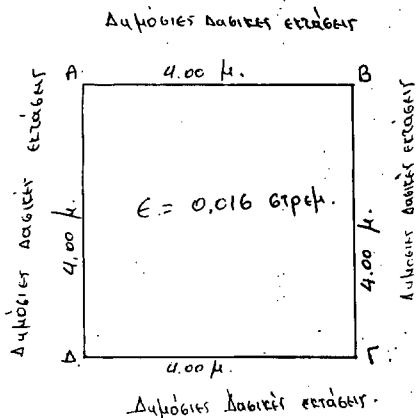 Δημόσιες Δασικές εκτάσεις
Α 4.00 μ. Β
Δημόσιες Δασικές εκτάσεις
4,00 μ.
Ε = 0,016 στρεμ.
4.00 μ.
Δημόσιες Δασικές εκτάσεις
Δ 4.00 μ. Γ
Δημόσιες Δασικές εκτάσεις.